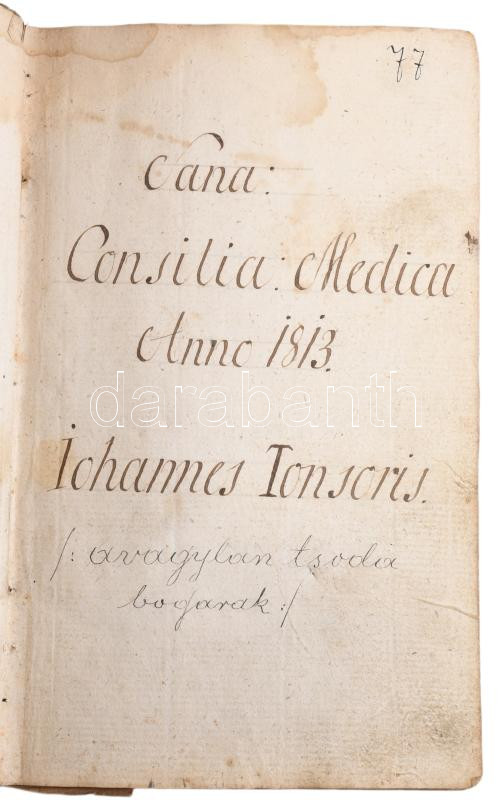 77
Sana:
Consilia: Medica
Anno 1813.
darabanth
Iohannes Tonsoris.
/: avagylan tsoda
bogarak :/